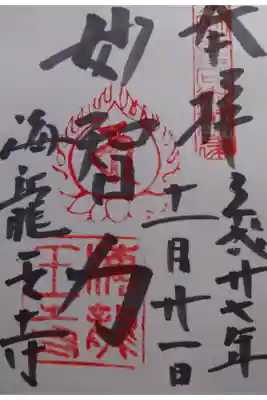 奉拝
平成廿七年
十一月廿一日
妙智力
海龍王寺
海龍
王寺